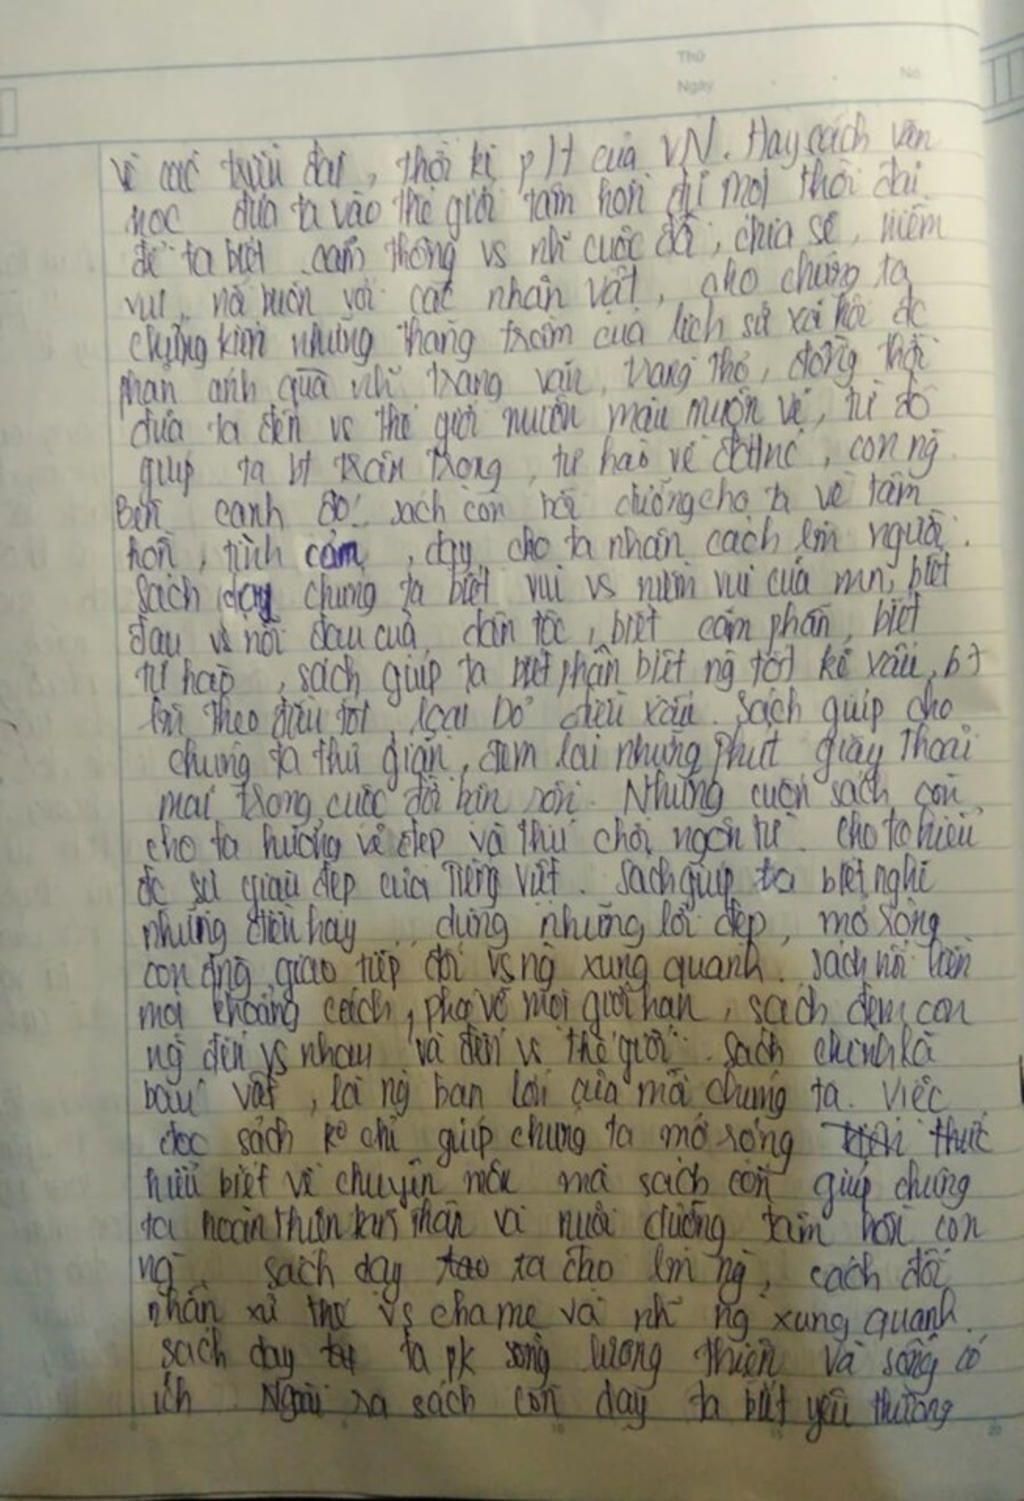 Thứ
Ngày No
về các triều đại, thời kì pH của VN. Hay sách văn
học đưa ta vào thế giới tâm hồn từ mọi thời đại
để ta biết cảm thông vs nh~ cuộc đời, chia sẻ, niềm
vui, nỗi buồn với các nhân vật, cho chúng ta
chứng kiến những thăng trầm của lịch sử xã hội đc
phản ánh qua nh~ trang văn, trang thơ, đồng thời
đưa ta đến vs thế giới muôn màu muôn vẻ, từ đó
giúp ta bt trân trọng, tự hào về đất nc, con ng
Bên cạnh đó sách còn bồi dưỡng cho ta về tâm
hồn, tình cảm, dạy cho ta nhân cách lm người.
Sách dạy chúng ta biết vui vs niềm vui của mn, biết
đau vs nỗi đau của dân tộc, biết căm phẫn, biết
tự hào, sách giúp ta biết phân biệt ng tốt kẻ xấu, bt
lm theo điều tốt, loại bỏ điều xấu. Sách giúp cho
chúng ta thư giãn, đem lại những phút giây thoải
mái trong cuộc đời bận rộn. Những cuốn sách còn
cho ta hưởng vẻ đẹp và thú chơi ngôn từ. cho ta hiểu
đc sự giàu đẹp của Tiếng Việt. Sách giúp ta biết nghĩ
những điều hay, dùng những lời đẹp, mở rộng
con đng giao tiếp đối vs ng xung quanh. Sách nối liền
mọi khoảng cách, phá vỡ mọi giới hạn, sách đem con
ng đến vs nhau và đến vs thế giới. Sách chính là
báu vật, là ng bạn lớn của mỗi chúng ta. Việc
đọc sách ko chỉ giúp chúng ta mở rộng thức
hiểu biết về chuyên môn mà sách còn giúp chúng
ta hoàn thiện bản thân và nuôi dưỡng tâm hồn con
ng. Sách dạy ta cho lm ng, cách đối
nhân xử thế vs cha mẹ và nh~ ng xung quanh.
Sách dạy ta pk sống lương thiện và sống có
ích. Ngoài ra sách còn dạy ta biết yêu thương